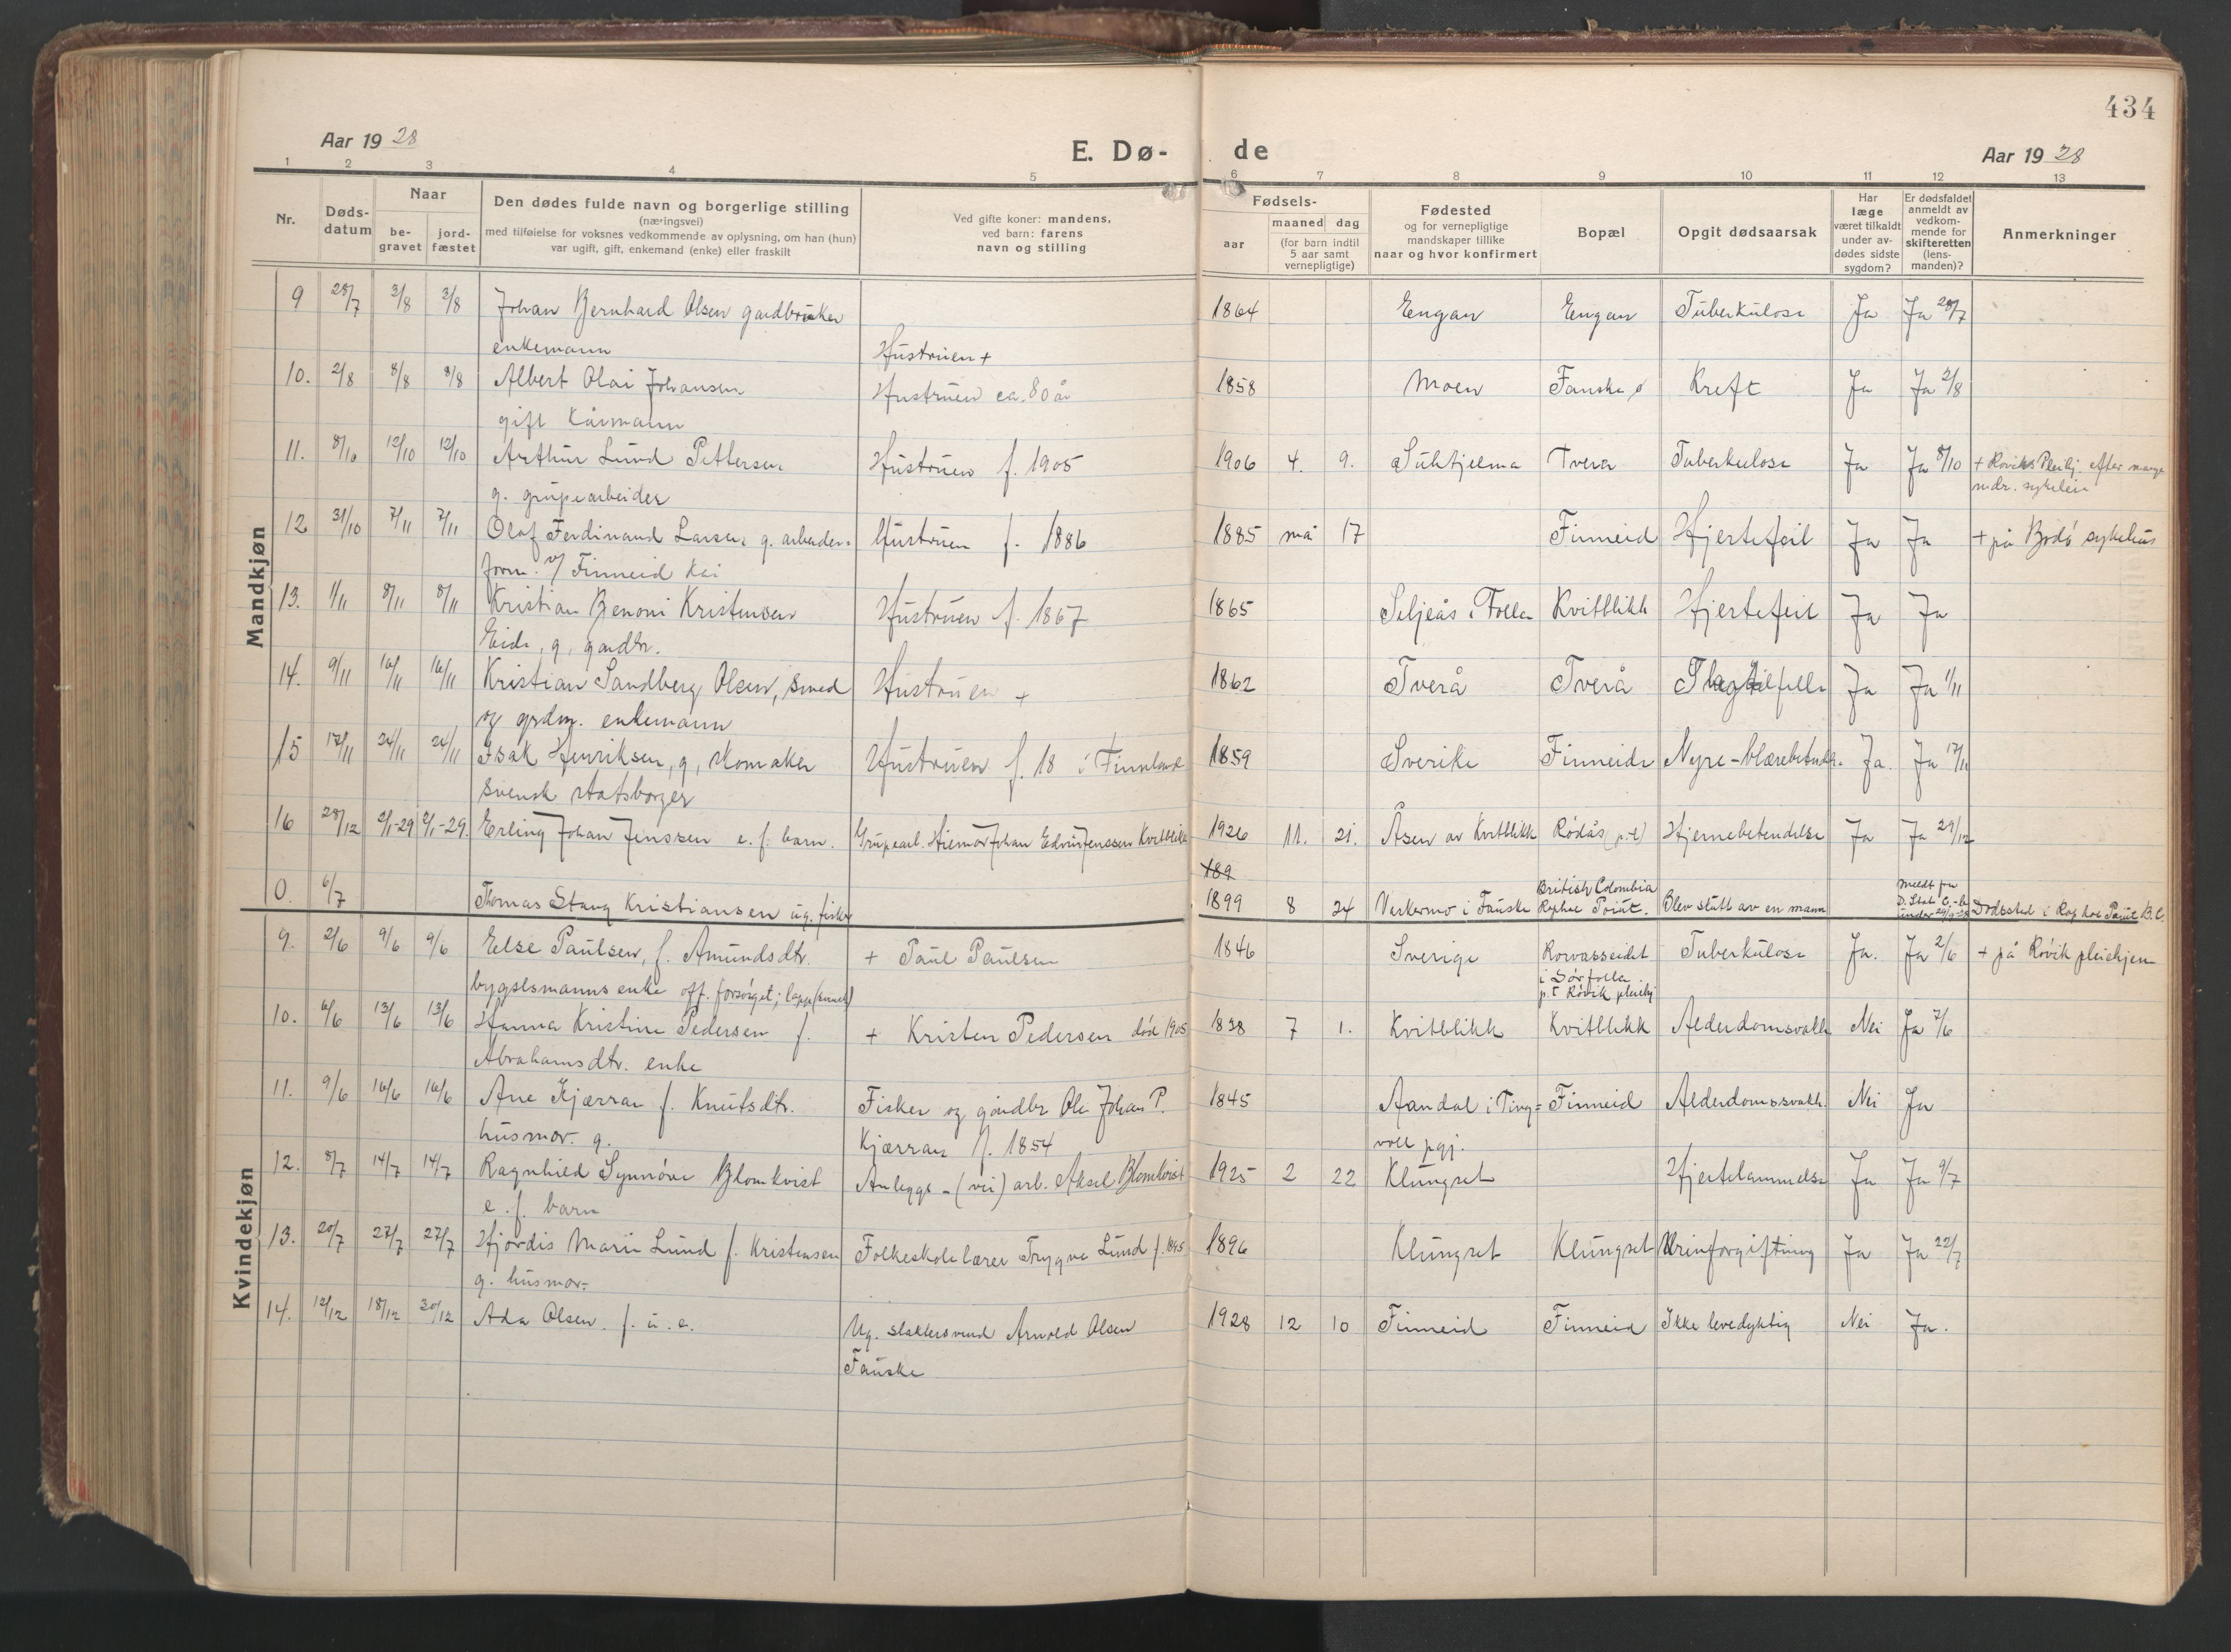 434
Aar 1928
E. Dø- de
Aar 1928
1 2 3 4 5 6 7 8 9 10 11 12 13
Nr.
Døds-
datum
Naar
be-
gravet
jord-
fæstet
Den dødes fulde navn og borgerlige stilling
(næringsvei)
med tilføielse for voksnes vedkommende av oplysning, om han (hun)
var ugift, gift, enkemand (enke) eller fraskilt
Ved gifte koner: mandens,
ved barn: farens
navn og stilling
Fødsels-
aar
maaned dag
(for barn indtil
5 aar samt
vernepligtige)
Fødested
og for vernepligtige
mandskaper tillike
naar og hvor konfirmert
Bopæl
Opgit dødsaarsak
Har
læge
været tilkaldt
under av-
dødes sidste
sygdom?
Er dødsfaldet
anmeldt av
vedkom-
mende for
skifteretten
(lens-
manden)?
Anmerkninger
Mandkjøn
9 28/7 3/8 3/8 Johan Bernhard Olsen gardbruker 1864 Engan Engan Tuberkulose Ja Ja 28/7
enkemann Hustruen +
10. 2/8 8/8 8/8 Albert Olai Johansen Hustruen ca. 80 år 1858 Moen Fauske ø Kreft Ja Ja 2/8
gift kårmann
11. 8/10 12/10 12/10 Arthur Lund Pettersen Hustruen f. 1905 1906 4. 9. Sulitjelma Tverå Tuberkulose Ja Ja 8/10 + Røviks Pleihj. efter mange
g. grupearbeider mdr. sykeleie
12 31/10 7/11 7/11 Olaf Ferdinand Larsen g. arbeider- Hustruen f. 1886 1885 mai 17 Finneid Hjertefeil Ja Ja + på Bodø sykehus
form. v/ Finneid Kai
13. 1/11 8/11 8/11 Kristian Benoni Kristensen Hustruen f. 1867 1865 Seljeås i Folla Kvitblikk Hjertefeil Ja Ja
Eide, g, gardbr.
14. 9/11 16/11 16/11 Kristian Sandberg Olsen, smed Hustruen + 1862 Tverå Tverå Slagtilfelle Ja Ja 1/11
og grdm. enkemann
15 17/11 24/11 24/11 Isak Henriksen, g, skomaker Hustruen f. 18 i Finnland 1859 Sverike Finneide Nyre-blærebetend. Ja. Ja 17/11
svensk statsborger
16 28/12 2/1-29 2/1-29. Erling Johan Jenssen e. f. barn. Grupearb. Hilmar Johan Edvin Jenssen Kvitblikk 1926 11. 21. Åsen av Kvitblikk Rødås (p.t) Hjernebetendelse Ja Ja 29/12
189
0. 6/7 Thomas Stang Kristiansen ug. fisker 1899 8 24 Verkermo i Fauske British Colombia
Rephoe Point. Blev slått av en mann meldt fra
D. Stat Dødssted i Rophoe Point B.C.
Kvindekjøn
9. 2/6 9/6 9/6 Else Paulsen, f. Amundsdtr. + Paul Paulsen 1846 Sverige Korvasseidet Tuberkulose Ja. Ja 2/6 + på Røvik pleiehjem
bygselsmanns enke off. forsørget; lapp i Sørfolla
p.t Røvik pleiehj
10. 6/6 13/6 13/6 Hanna Kristine Pedersen f. + Kristen Pedersen død 1905 1838 7 1. Kvitblikk Kvitblikk Alderdomsvakh Nei Ja 7/6
Abrahamsdtr. enke
11. 9/6 16/6 16/6 Ane Kjærran f. Knutsdtr. Fisker og gårdbr Ole Johan P. 1845 Aandal i Ting= Finneid Alderdomssvakh. Nei Ja
husmor. g. Kjærran f. 1854 voll pgj.
12. 8/7 14/7 14/7 Ragnhild Synnøve Blomkvist Anleggs-(vei) arb. Aksel Blomkvist 1925 2 22 Klungset Hjertelammelse Ja Ja 9/7
e. f. barn
13. 20/7 27/7 27/7 Hjørdis Marie Lund f. Kristensen Folkeskolelærer Trygve Lund f. 1895 1896 Klungset Klungset Urinforgiftning Ja Ja 22/7
g. husmor-
14. 12/12 18/12 30/12 Ada Olsen. f. u. e. Ug. slaktersvend Arnold Olsen 1928 12 10 Finneid Finneid Ikke levedyktig Nei Ja.
Fauske